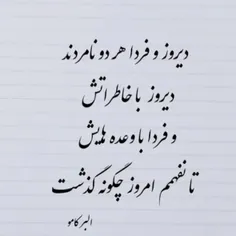 دیروز و فردا هر دو نامردند
دیروز با خاطراتش
و فردا با وعده هایش
تا نفهمم امروز چگونه گذشت
البر کامو